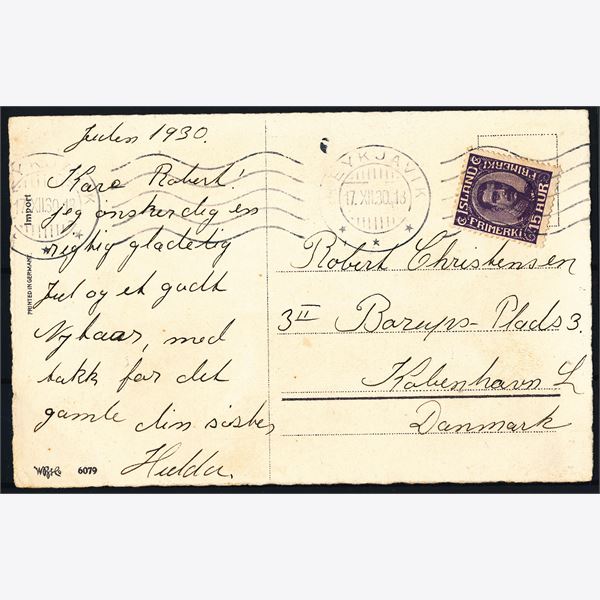 Julen 1930.
Kære Robert!
Jeg ønsker dig en
rigtig glædelig
Jul og et godt
Nytaar, med
takk for det
gamle din søster
Hulda.
PRINTED IN GERMANY
Import
6079
REYKJAVIK
17.XII.30.18
ÍSLAND
FRIMERKI
15 AUR
FRIMERKI
Robert Christensen
3 II Borups-Plads 3.
København L
Danmark